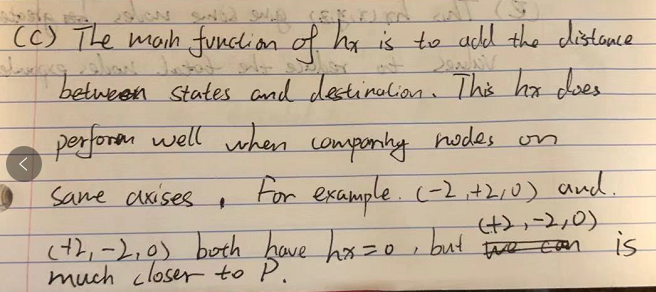 (C) The main function of hx is to add the distance
between states and destination. This hx does
perform well when comparing nodes on
same axises, for example. (-2,+2,0) and.
(+2,-2,0) both have hx=0, but (+2,-2,0) is
much closer to P.